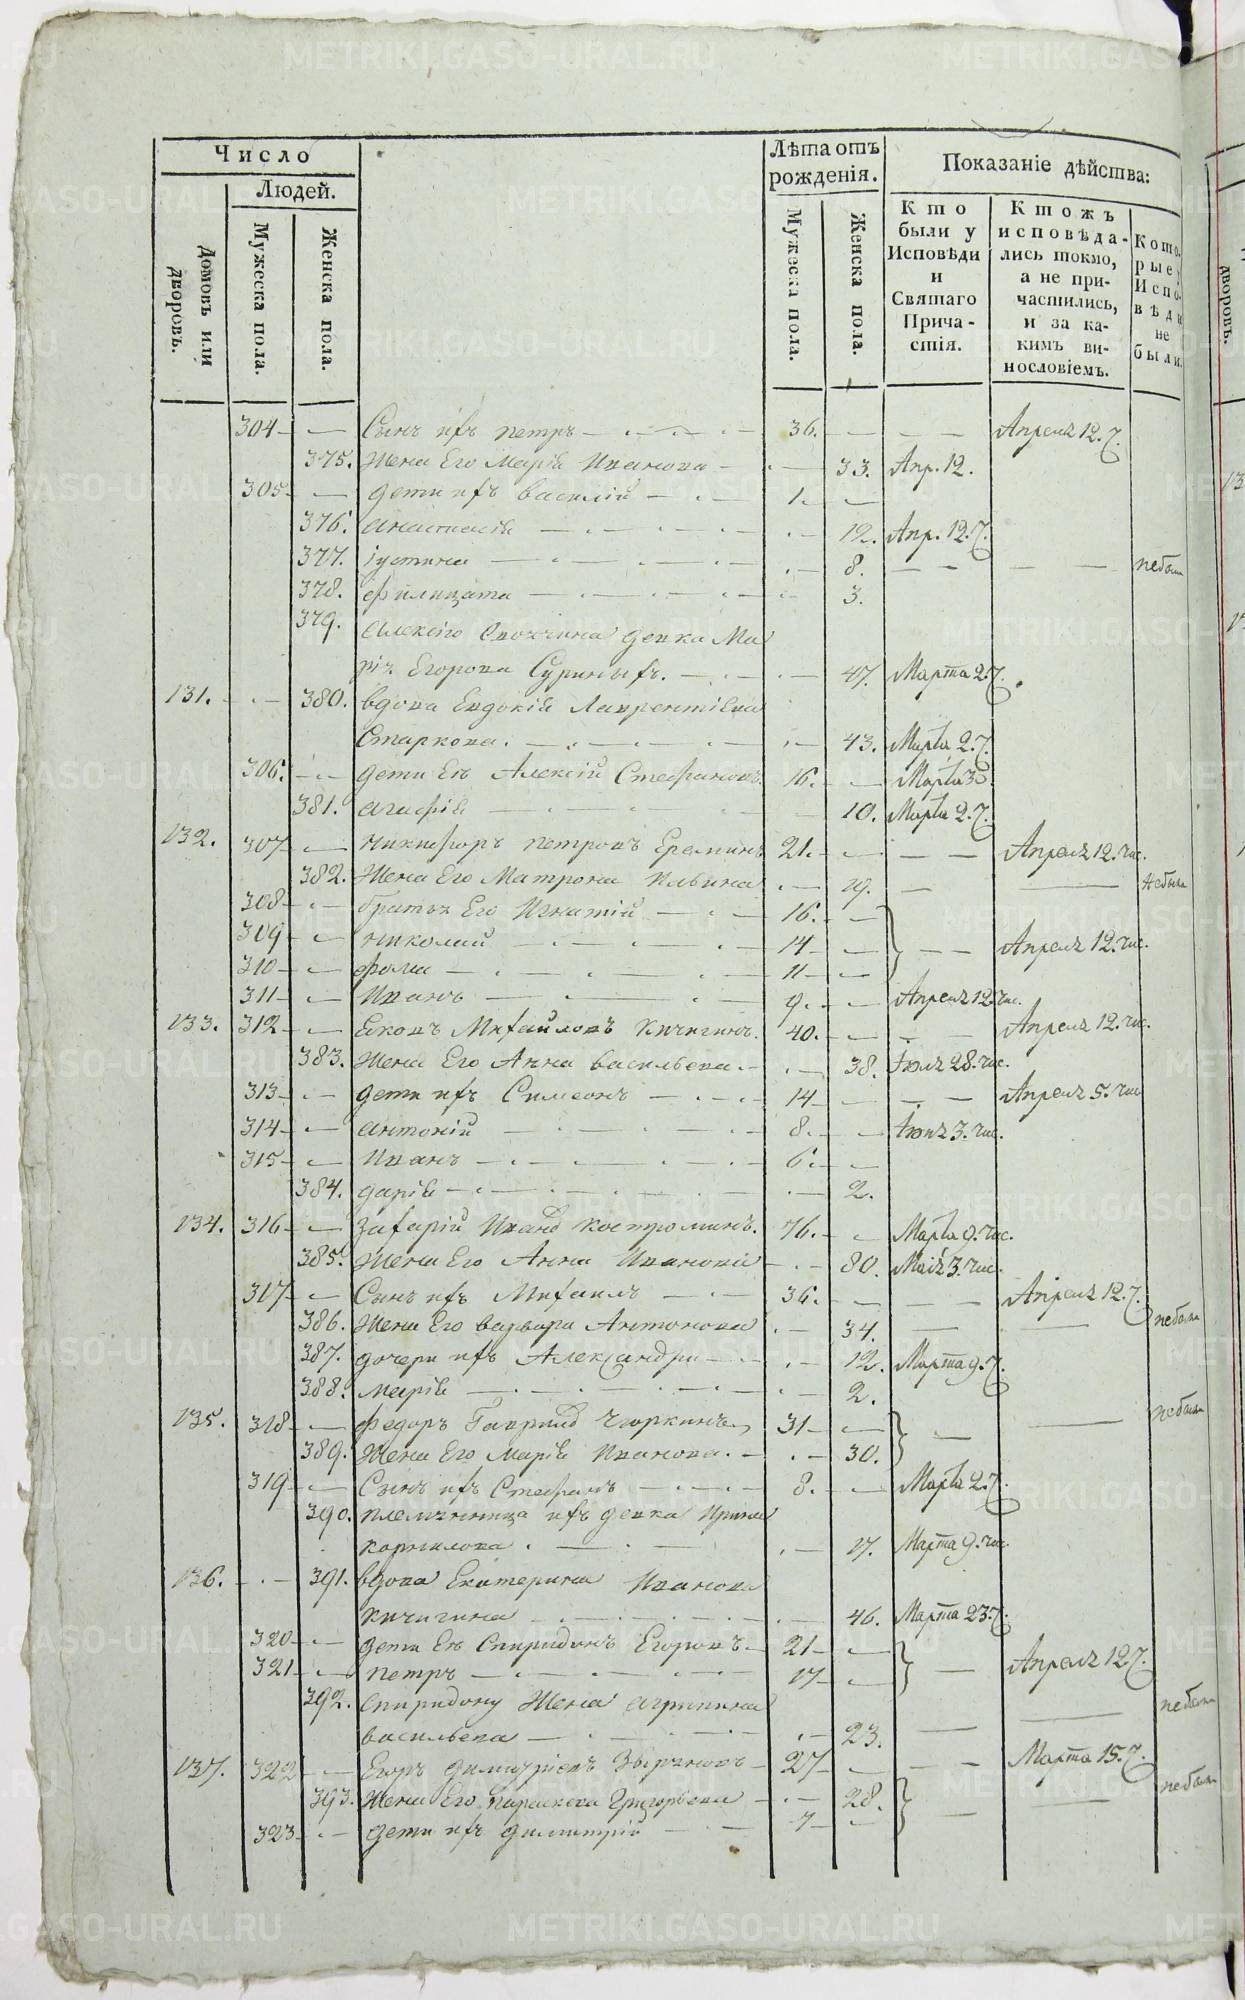 Число
Людей.
Домовъ или дворовъ.
Мужеска пола.
Женска пола.
Лѣта отъ рожденія.
Мужеска пола.
Женска пола.
Показаніе дѣйства:
Кто были у Исповѣди и Святаго Прича-стія.
Ктожъ исповѣда-лись токмо, а не при-частились, и за ка-кимъ ви-нословіемъ.
Кото-рые у Испо-вѣди не были.
304 Сынъ ихъ петръ 36. Апреля 12. 7.
375. Жена Его Марія Иванова 33. Апр. 12.
305 дети ихъ василій 1.
376. анастасія 12. Апр. 12. 7.
377. іустина 8. небыла
378. филицата 3.
379. алексіго девка Ма
рія Егорова 47. Марта 2. 7.
131. 380. вдова Евдокія Лаврентіева
Старкова. 43. Марта 2. 7.
306. дети Ея Алексій Стефановъ 16. Марта
381. агафія 10. Марта 2. 7.
132. 307 никифоръ петровъ Ереминъ 21. Апреля 12. чис.
382. Жена Его Матрона Ильина 19. небыла
308 братья Его Игнатій 16.
309 николай 14 Апреля 12. чис.
310 фома 11
311 Иванъ 9. Апреля 12. чис.
133. 312 Яковъ Михайловъ Кичигинъ. 40. Апреля 12. чис.
383. Жена Его Анна васильева 38. 28. чис.
313 дети ихъ Симеонъ 14 Апреля 5. чис
314 антоній 8. 3. чис.
315 Иванъ 6.
384. дарія 2.
134. 316 Захарій Иванд костроминъ. 76. Марта 9. чис.
385. Жена Его Анна Иванова 80. Маія 3. чис.
317 Сынъ ихъ Михаилъ 36. Апреля 12. 7.
386. Жена Его варвара Антонова 34. небыла
387. дочери ихъ Александра 12. Марта 9. 7.
388. марія 2.
135. 318 федоръ Гаврилд 31 небыли
389. Жена Его Марія Иванова. 30.
319 Сынъ ихъ Стефанъ 8. Марта 2. 7.
390. племянница ихъ девка Ирина
корнилова 17. Марта 9. чис.
136. 391. вдова Екатерина Иванова
кичигина 46. Марта 23. 7.
320 дети Ея Спиридонъ Егоровъ 21
321 петръ 17 Апреля 12 7.
392. спиридону Жена агрипина
васильева 23. небыла
137. 322 Егоръ димитріевъ Зыряновъ 27 Марта 15. 7.
393. Жена Его параскева Григорьева 28. небыли
323 дети ихъ димитрій
METRIKI.GASO-URAL.RU